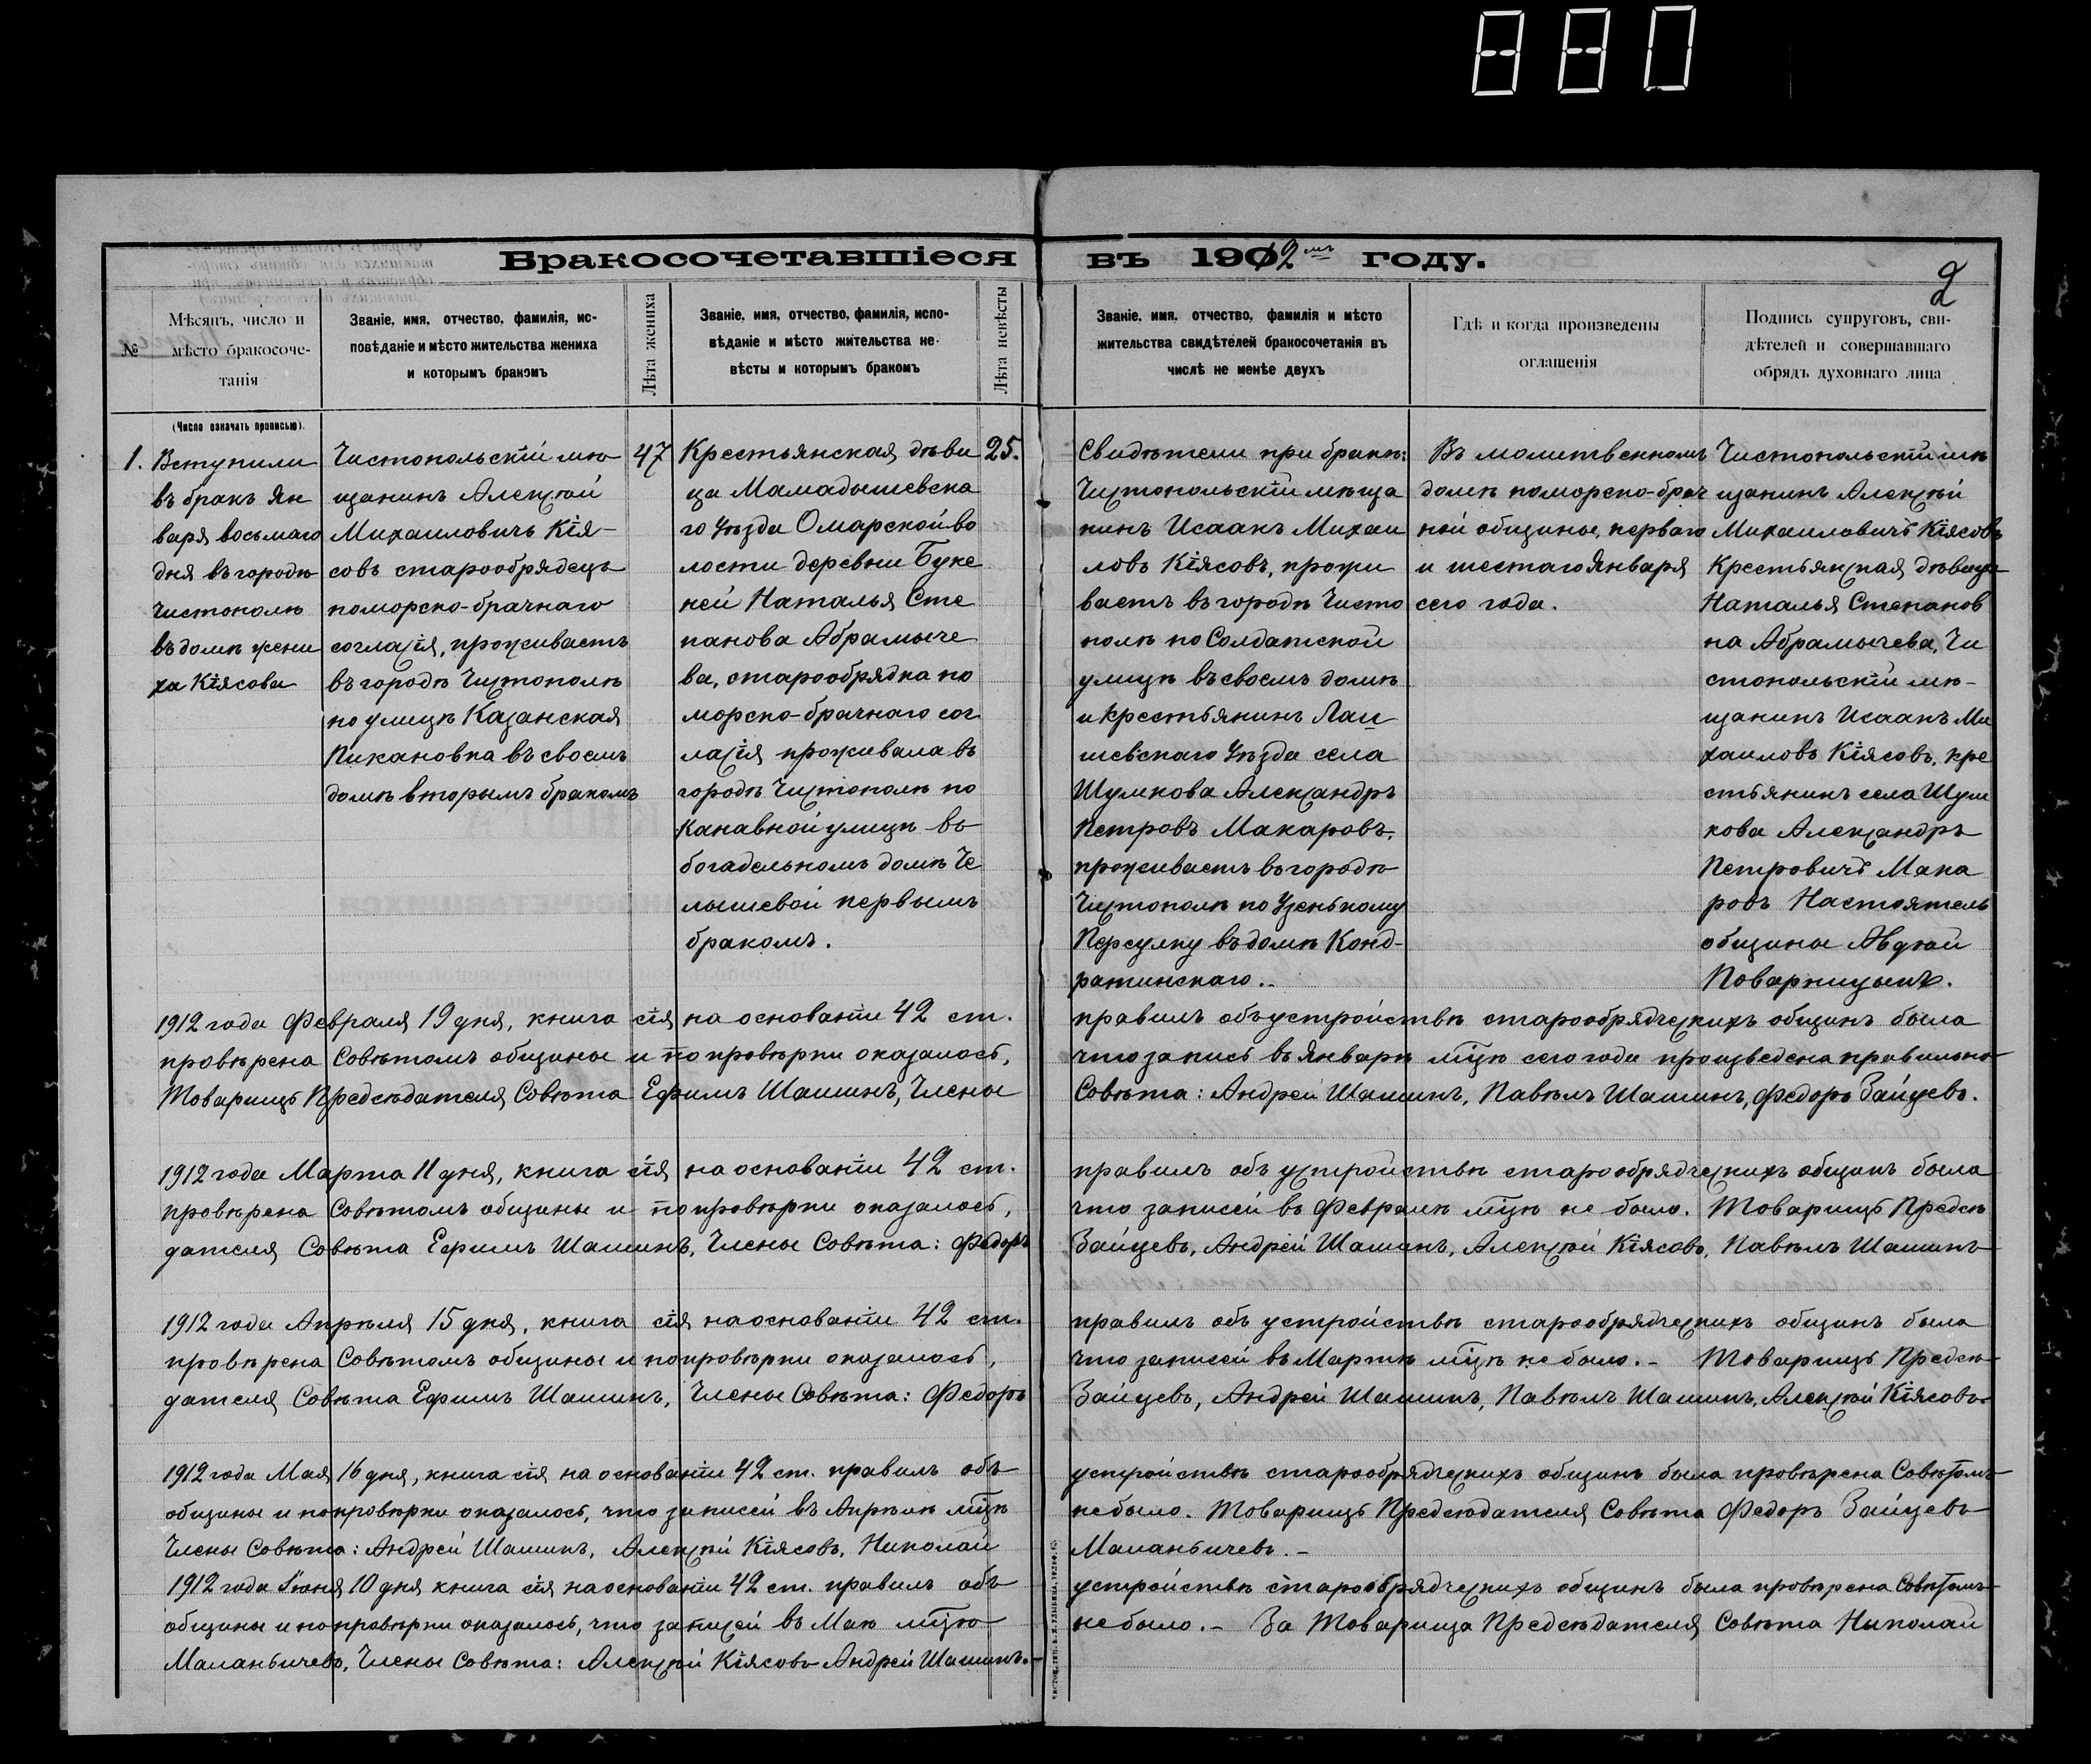 880
Бракосочетавшіеся въ 1912мъ году.
2
№
Мѣсяцъ, число и
мѣсто бракосоче-
танія
Званіе, имя, отчество, фамилія, ис-
повѣданіе и мѣсто жительства жениха
и которымъ бракомъ
Лѣта жениха
Званіе, имя, отчество, фамилія, испо-
вѣданіе и мѣсто жительства не-
вѣсты и которымъ бракомъ
Лѣта невѣсты
Званіе, имя, отчество, фамилія и мѣсто
жительства свидѣтелей бракосочетанія въ
числѣ не менѣе двухъ
Гдѣ и когда произведены
оглашенія
Подпись супруговъ, сви-
дѣтелей и совершавшаго
обрядъ духовнаго лица
(Число означать прописью).
1.
Вступили
въ бракъ Ян
варя восьмаго
дня въ городѣ
Чистополѣ
въ домѣ жени
ха Кіясова
Чистопольскій мѣ
щанинъ Алексѣй
Михаиловичъ Кія-
совъ старообрядецъ
поморско-брачнаго
согласія, проживаетъ
въ городѣ Чистополѣ
по улицѣ Казанская
Пикановка въ своемъ
домѣ вторымъ бракомъ
47
Крестьянская дѣви
ца Мамадышевска
го Уѣзда Омарской во
лости деревни Буке
ней Наталья Сте
панова Абрамыче
ва, старообрядка по
морско-брачнаго сог
ласія проживала въ
городѣ Чистополѣ по
Канавной улицѣ въ
богадельномъ домѣ Че
лышевой первымъ
бракомъ.
25.
Свидѣтели при бракѣ:
Чистопольскій мѣща
нинъ Исаакъ Михаи
ловъ Кіясовъ, прожи
ваетъ въ городѣ Чисто
полѣ по Солдатской
улицѣ въ своемъ домѣ
и крестьянинъ Лаи
шевскаго Уѣзда села
Шумкова Александръ
Петровъ Макаровъ,
проживаетъ въ городѣ
Чистополѣ по Узенькому
Переулку въ домѣ Конд-
ратинскаго.
Въ молитвенномъ
домѣ поморско-брач
ной общины, перваго
и шестаго Января
сего года.
Чистопольскій мѣ
щанинъ Алексѣй
Михаиловичъ Кіясовъ
Крестьянская дѣвица
Наталья Степанов
на Абрамычева, Чи
стопольскій мѣ-
щанинъ Исаакъ Ми
хаиловъ Кіясовъ, кре
стьянинъ села Шум
кова Александръ
Петровичъ Мака
ровъ Настоятель
общины Авдѣй
Поварницынъ.
1912 года Февраля 19 дня, книга сія на основаніи 42 ст. правилъ объ устройствѣ старообрядческихъ общинъ была
провѣрена Совѣтомъ общины и по провѣрки оказалось, что запись въ Январѣ мцѣ сего года произведена правильно
Товарищъ Предсѣдателя Совѣта Ефимъ Шашинъ, Члены Совѣта: Андрей Шашинъ, Павѣлъ Шашинъ, Федоръ Зайцевъ.
1912 года Марта 11 дня, книга сія на основаніи 42 ст. правилъ объ устройствѣ старообрядческихъ общинъ была
провѣрена Совѣтомъ общины и по провѣрки оказалось, что записей въ Февралѣ мцѣ не было. Товарищъ Предсѣ
дателя Совѣта Ефимъ Шашинъ, Члены Совѣта: Федоръ Зайцевъ, Андрей Шашинъ, Алексѣй Кіясовъ, Павѣлъ Шашинъ
1912 года Апрѣля 15 дня, книга сія на основаніи 42 ст. правилъ объ устройствѣ старообрядческихъ общинъ была
провѣрена Совѣтомъ общины и по провѣрки оказалось, что записей въ Мартѣ мцѣ не было. - Товарищъ Предсѣ
дателя Совѣта Ефимъ Шашинъ, Члены Совѣта: Федоръ Зайцевъ, Андрей Шашинъ, Павѣлъ Шашинъ, Алексѣй Кіясовъ
1912 года Мая 16 дня, книга сія на основаніи 42 ст. правилъ объ устройствѣ старообрядческихъ общинъ была провѣрена Совѣтомъ
общины и по провѣрки оказалось, что записей въ Апрѣлѣ мцѣ не было. Товарищъ Предсѣдателя Совѣта Федоръ Зайцевъ
Члены Совѣта: Андрей Шашинъ, Алексѣй Кіясовъ, Николай Маланьичевъ. -
1912 года Іюня 10 дня книга сія на основаніи 42 ст. правилъ объ устройствѣ старообрядческихъ общинъ была провѣрена Совѣтомъ
общины и по провѣрки оказалось, что записей въ Маѣ мцѣ не было. - За Товарища Предсѣдателя Совѣта Николай
Маланьичевъ, Члены Совѣта: Алексѣй Кіясовъ Андрей Шашинъ. -